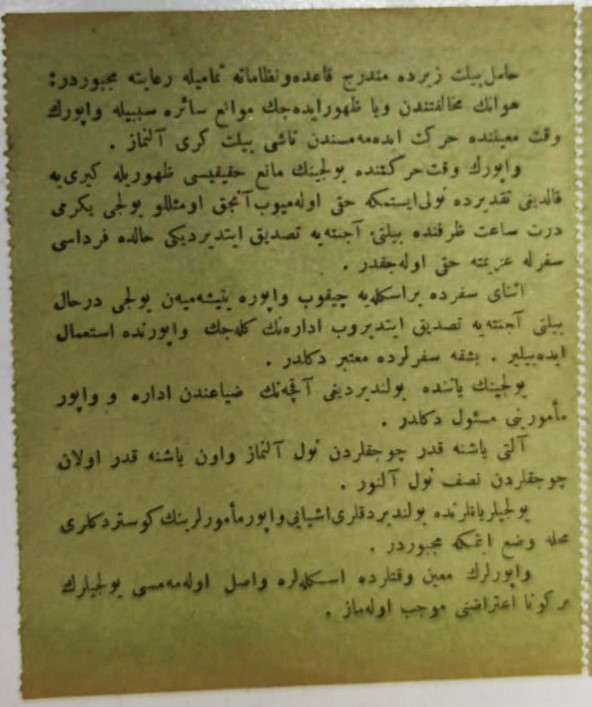 حامل بيلت زيرده مندرج قاعده ونظاماته تماميله رعايته مجبوردر:
هوانك مخالفتندن ويا ظهور ايده جك موانع سائره سببيله واپورك
وقت معيننده حركت ايده مه مسندن ناشى بيلت كرى آلنماز .
واپورك وقت حركتنده يولجينك مانع حقيقيسى ظهوريله كيرى يه
قالديغى تقديرده نولى ايستمكه حقى اوله ميوب آنجق اومثللو يولجى يكرمى
درت ساعت ظرفنده بيلتى آجنته يه تصديق ايتديرديكى حالده فرداسى
سفرله عزيمته حقى اوله جقدر .
اثناى سفرده براسكله يه چيقوب واپوره يتيشه ميه ن يولجى درحال
بيلتى آجنته يه تصديق ايتديروب اداره نك كله جك واپورنده استعمال
ايده بيلير . بشقه سفرلرده معتبر دكلدر .
يولجينك ياننده بولنديرديغى آقچه نك ضياعندن اداره و واپور
مأمورينى مسئول دكلدر .
آلتى ياشنه قدر چوجقلردن نول آلنماز واون ياشنه قدر اولان
چوجقلردن نصف نول آلنور .
يولجيلر يانلرنده بولنديردقلرى اشيايى واپور مأمورلرينك كوستردكلرى
محله وضع ايتمكه مجبوردر .
واپورلرك معين وقتلرده اسكله لره واصل اوله مه مسى يولجيلرك
بر كونا اعتراضنى موجب اوله ماز .